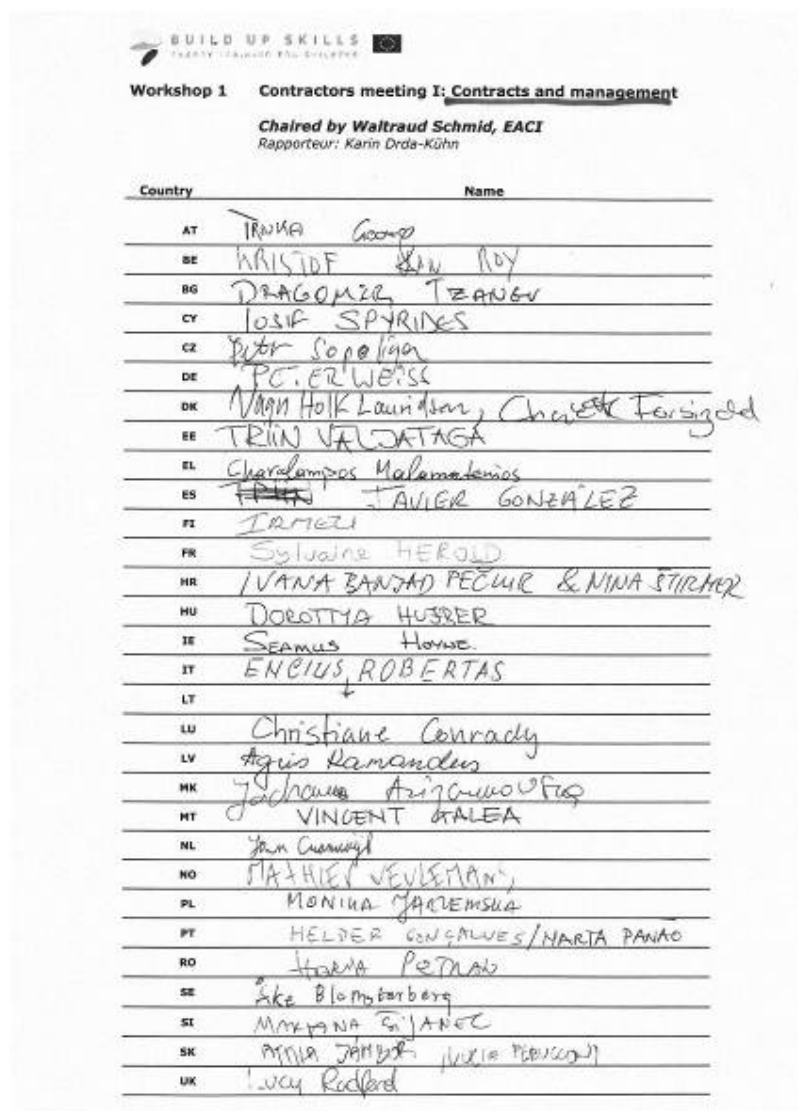 BUILD UP SKILLS
ENERGY TRAINING FOR BUILDERS
Workshop 1 Contractors meeting I: Contracts and management
Chaired by Waltraud Schmid, EACI
Rapporteur: Karin Drda-Kühn
Country Name
AT TRNKA Georg
BE KRISTOF VAN ROY
BG DRAGOMIR TZANEV
CY IOSIF SPYRIDES
CZ Petr Sopoliga
DE PETER WEISS
DK Vagn Holk Lauridsen,
EE TRIIN VALJATAGA
EL Charalampos Malamatenios
ES JAVIER GONZÁLEZ
FI
FR Sylvaine HEROLD
HR IVANA BANJAD PEČUR & NINA ŠTIRMER
HU DOROTTYA HUJBER
IE SEAMUS HOYNE
IT ENCIUS ROBERTAS
LT
LU Christiane Conrady
LV Agris Kamanders
MK
MT VINCENT GALEA
NL
NO MATHIEU VEULEMANS
PL MONIKA
PT HELDER GONÇALVES/MARTA PANÃO
RO HORIA PETRAN
SE Åke Blomsterberg
SI MARJANA ŠIJANEC
SK
UK Lucy Radford